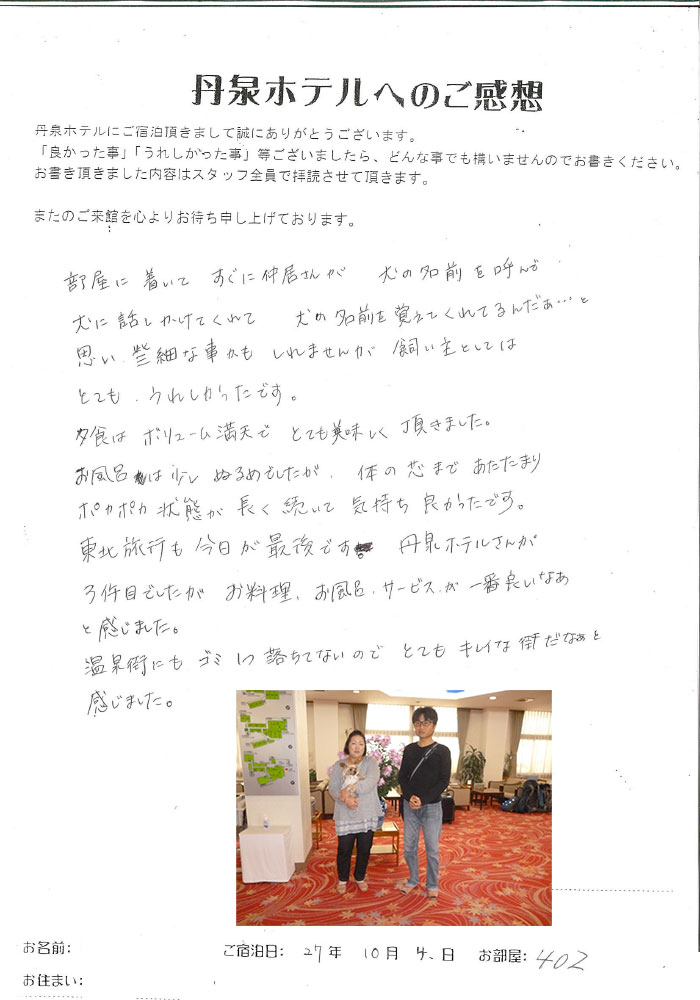 丹泉ホテルへのご感想
丹泉ホテルにご宿泊頂きまして誠にありがとうございます。
「良かった事」「うれしかった事」等ございましたら、どんな事でも構いませんのでお書きください。
お書き頂きました内容はスタッフ全員で拝読させて頂きます。
またのご来館を心よりお待ち申し上げております。
部屋に着いて すぐに仲居さんが 犬の名前を呼んで
犬に話しかけてくれて 犬の名前を覚えてくれてるんだぁ…と
思い、些細な事かも しれませんが 飼い主としては
とても、うれしかったです。
夕食は ボリューム満天で とても美味しく 頂きました。
お風呂は少し ぬるめでしたが、体の芯まで あたたまり
ポカポカ状態が 長く続いて 気持ち良かったです。
東北旅行も今日が最後です。 丹泉ホテルさんが
3件目でしたが お料理、お風呂、サービスが 一番良いなあ
と感じました。
温泉街にも ゴミ1つ落ちてないので とても キレイな街だなぁと
感じました。
お名前: ご宿泊日: 27年 10月 4日 お部屋: 402
お住まい: